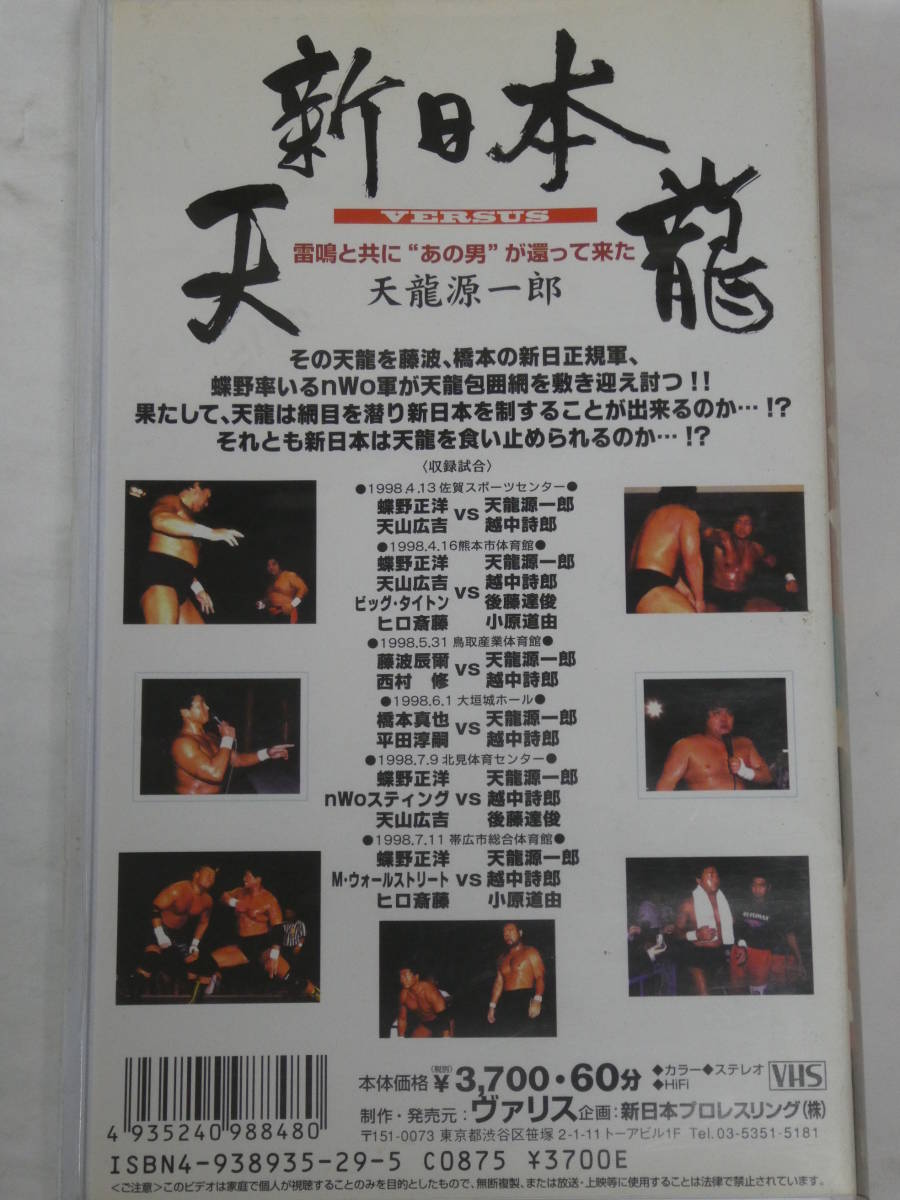 新日本
天龍
VERSUS
雷鳴と共に“あの男”が還って来た
天龍源一郎
その天龍を藤波、橋本の新日正規軍、
蝶野率いるnWo軍が天龍包囲網を敷き迎え討つ!!
果たして、天龍は網目を潜り新日本を制することが出来るのか…!?
それとも新日本は天龍を食い止められるのか…!?
〈収録試合〉
●1998.4.13 佐賀スポーツセンター●
蝶野正洋 天龍源一郎
vs
天山広吉 越中詩郎
●1998.4.16熊本市体育館●
蝶野正洋 天龍源一郎
天山広吉 越中詩郎
vs
ビッグ・タイトン 後藤達俊
ヒロ斎藤 小原道由
●1998.5.31 鳥取産業体育館●
藤波辰爾 天龍源一郎
vs
西村 修 越中詩郎
●1998.6.1 大垣城ホール●
橋本真也 天龍源一郎
vs
平田淳嗣 越中詩郎
●1998.7.9 北見体育センター●
蝶野正洋 天龍源一郎
nWoスティング vs 越中詩郎
天山広吉 後藤達俊
●1998.7.11 帯広市総合体育館●
蝶野正洋 天龍源一郎
M・ウォールストリート vs 越中詩郎
ヒロ斎藤 小原道由
本体価格(税別)¥3,700・60分
◆カラー◆ステレオ
◆HiFi
VHS
制作・発売元：ヴァリス 企画：新日本プロレスリング(株)
〒151-0073 東京都渋谷区笹塚 2-1-11トーアビル1F Tel.03-5351-5181
4 935240 988480
ISBN4-938935-29-5 C0875 ¥3700E
<ご注意>このビデオは家庭で個人が視聴することのみを目的としたもので、無断複製、または放送・上映等に使用することは法律で禁止されています。